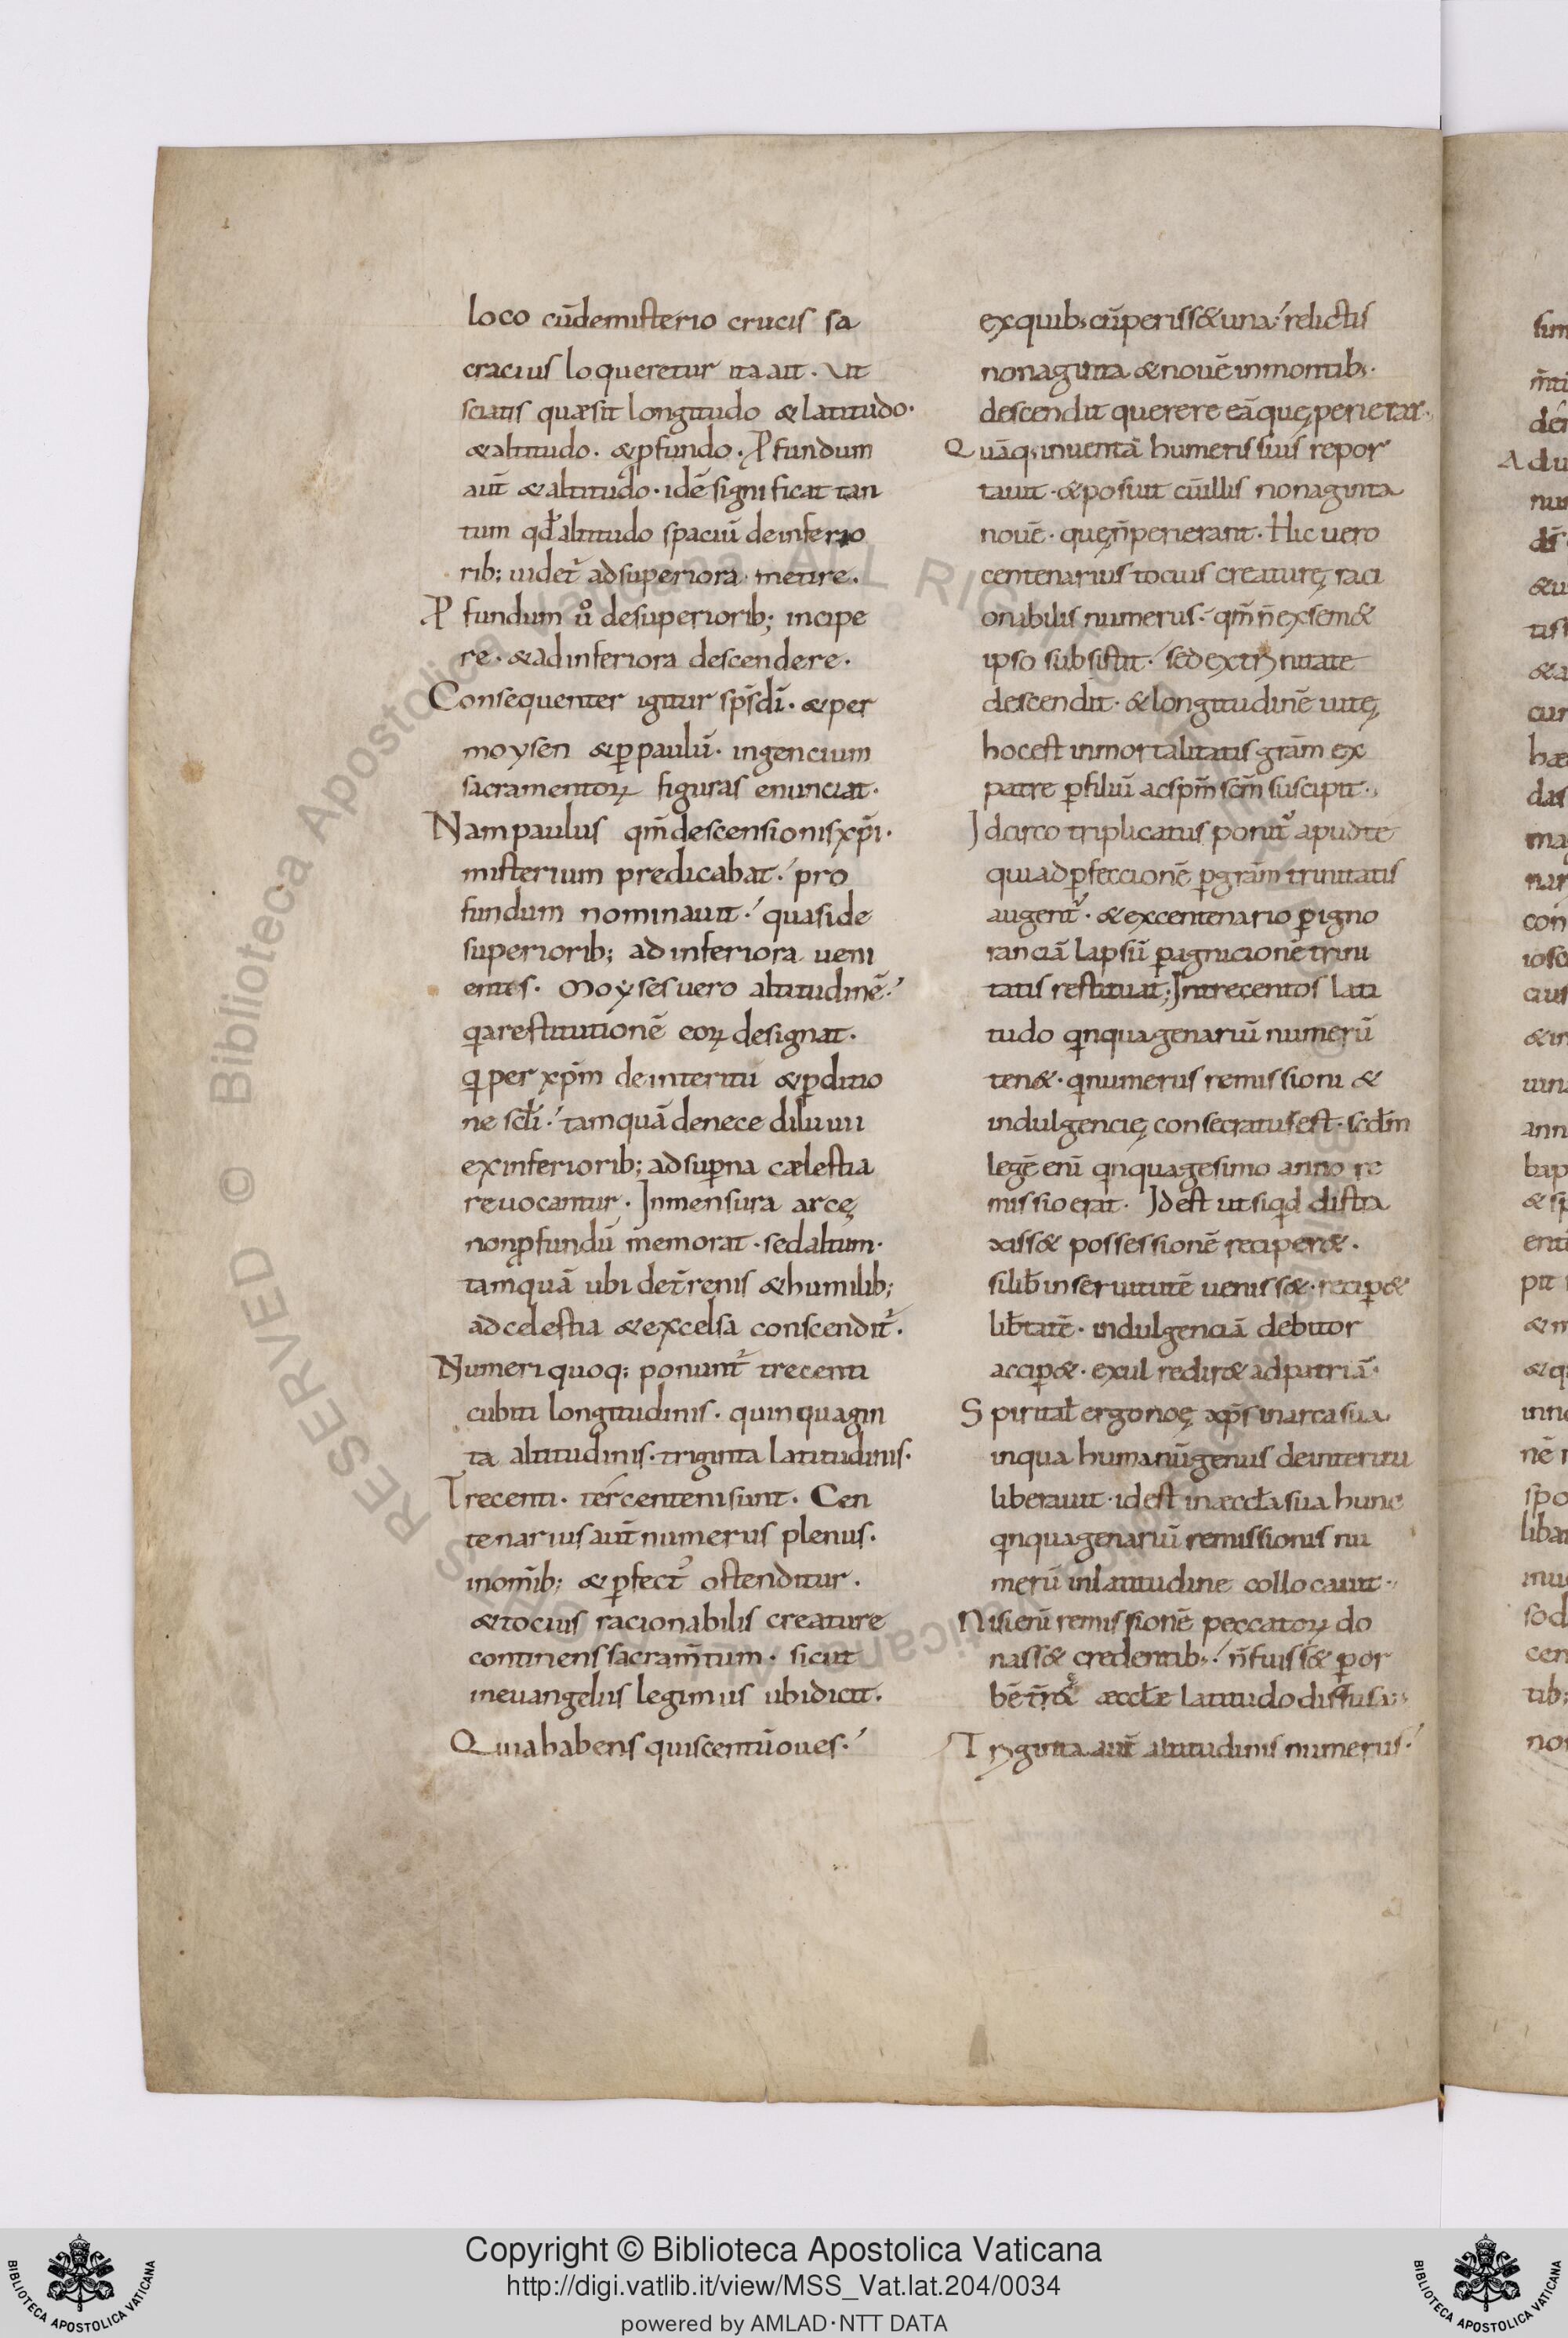 loco cūdemisterio crucis sa
cracius loqueretur ita ait · Ut
sciatis quæsit longitudo & latitudo ·
& altitudo · & ꝓfundo · Ꝓfundum
aut̄ & altitudo · idē significat tan
tum qđ altitudo spaciū deinferio
rib; uidet̄ adsuperiora metire ·
Ꝓfundum ů desuperiorib; incipe
re · & adinferiora descendere ·
Consequenter igitur sp̄s dī · & per
moysen & ꝑ paulū · ingencium
sacramentoꝝ figuras enunciat ·
Nam paulus qm̄ descensionis xp̄i ·
misterium predicabat ·' pro
fundum nominauit ·' quaside
superiorib; ad inferiora ueni
entes · Moyses uero altitudinē ·'
qarestitutionē eoꝝ designat ·
qi per xp̄m de interitu & ꝑditio
ne scłi ·' tamquā denece diluuii
exinferiorib; adsuꝑna cælestia
reuocantur · Inmensura arcę
nonꝓfundū memorat · sedaltum ·
tamquā ubi det̄renis & humilib;
ad celestia & excelsa conscendit̄ ·
Numeri quoq; ponunt̄ trecenti
cubiti longitudinis · quinquagin
ta altitudinis · triginta latitudinis ·
Trecenti · tercenteni sunt · Cen
tenarius aut̄ numerus plenus ·
inom̄ib; & ꝑfect᾽ ostenditur ·
& tocius racionabilis creature
continens sacram̄tum · sicut
ineuangeliis legimus ubidicit ·
Quia habens quiscentū oues ·'
ex quib; cū periss& una ·' relictis
nonaginta & nouē inmontib; ·
descendit querere eā quę perierat ·
Quāq; inuentā humeris suis repor
tauit · & posuit cū illis nonaginta
nouē · quę n̄ perierant · Hic uero
centenarius tocius creaturę raci
onabilis numerus ·' qm̄ n̄ exsem&
ipso subsistit ·' sed extrynitate
descendit · & longitudinē uitę
hocest inmortalitatis grām ex
patre ꝑ filiū ac sp̄m sc̄m suscipit ·
Idcirco triplicatus ponit̄ apudte
quiadꝑfeccionē ꝑ grām trinitatis
augent̄ · & excentenario ꝑ igno
ranciā lapsū ꝑagnicionē trini
tatis restituat; Intrecentos lati
tudo qinquagenariū numerū
ten& · qi numerus remissioni &
indulgencię consecratus est · scđm
legē enī qinquagesimo anno re
missio erat · Id est ut siqid distra
xiss& possessionē reciper& ·
siliƀ inseruitutē ueniss& · recip&
liƀtatē · indulgenciā debitor
acciꝑ& · exul redir& ad patriā ·
Spiritał ergo noę xp̄s inarca sua
inqua humanū genus deinteritu
liberauit · idest in æccła sua hunc
qinquagenariū remissionis nu
merū inlatitudine collocauit ·
Nisi enī remissionē peccatoꝝ do
nass& credentib; ·' n̄ fuiss& ꝑ or
bē t̄rę æccłæ latitudo diffusa;
Tryginta aut̄ altitudinis numerus ·'
Copyright © Biblioteca Apostolica Vaticana
http://digi.vatlib.it/view/MSS_Vat.lat.204/0034
powered by AMLAD·NTT DATA